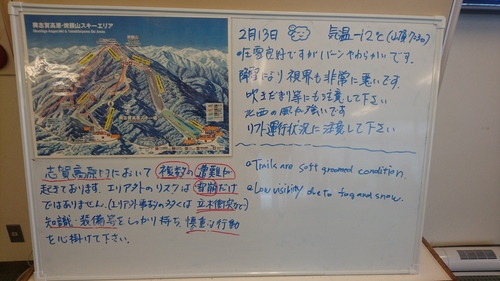 奥志賀高原・焼額山スキーエリア
2月13日 気温-12℃(山頂
圧雪良好ですがバーンやわらかいです。
降雪により視界も非常に悪いです。
吹きだまり等にも注意して下さい
北西の風が強いです
リフト運行状況に注意して下さい
Trails are soft groomed condition.
Low visibility due to fog and snow.
志賀高原エリアにおいて複数の遭難が
起きております。エリア外のリスクは雪崩だけ
ではありません。(エリア外事故の多くは立木衝突など)
知識・装備等をしっかり持ち、慎重な行動
を心掛けて下さい。